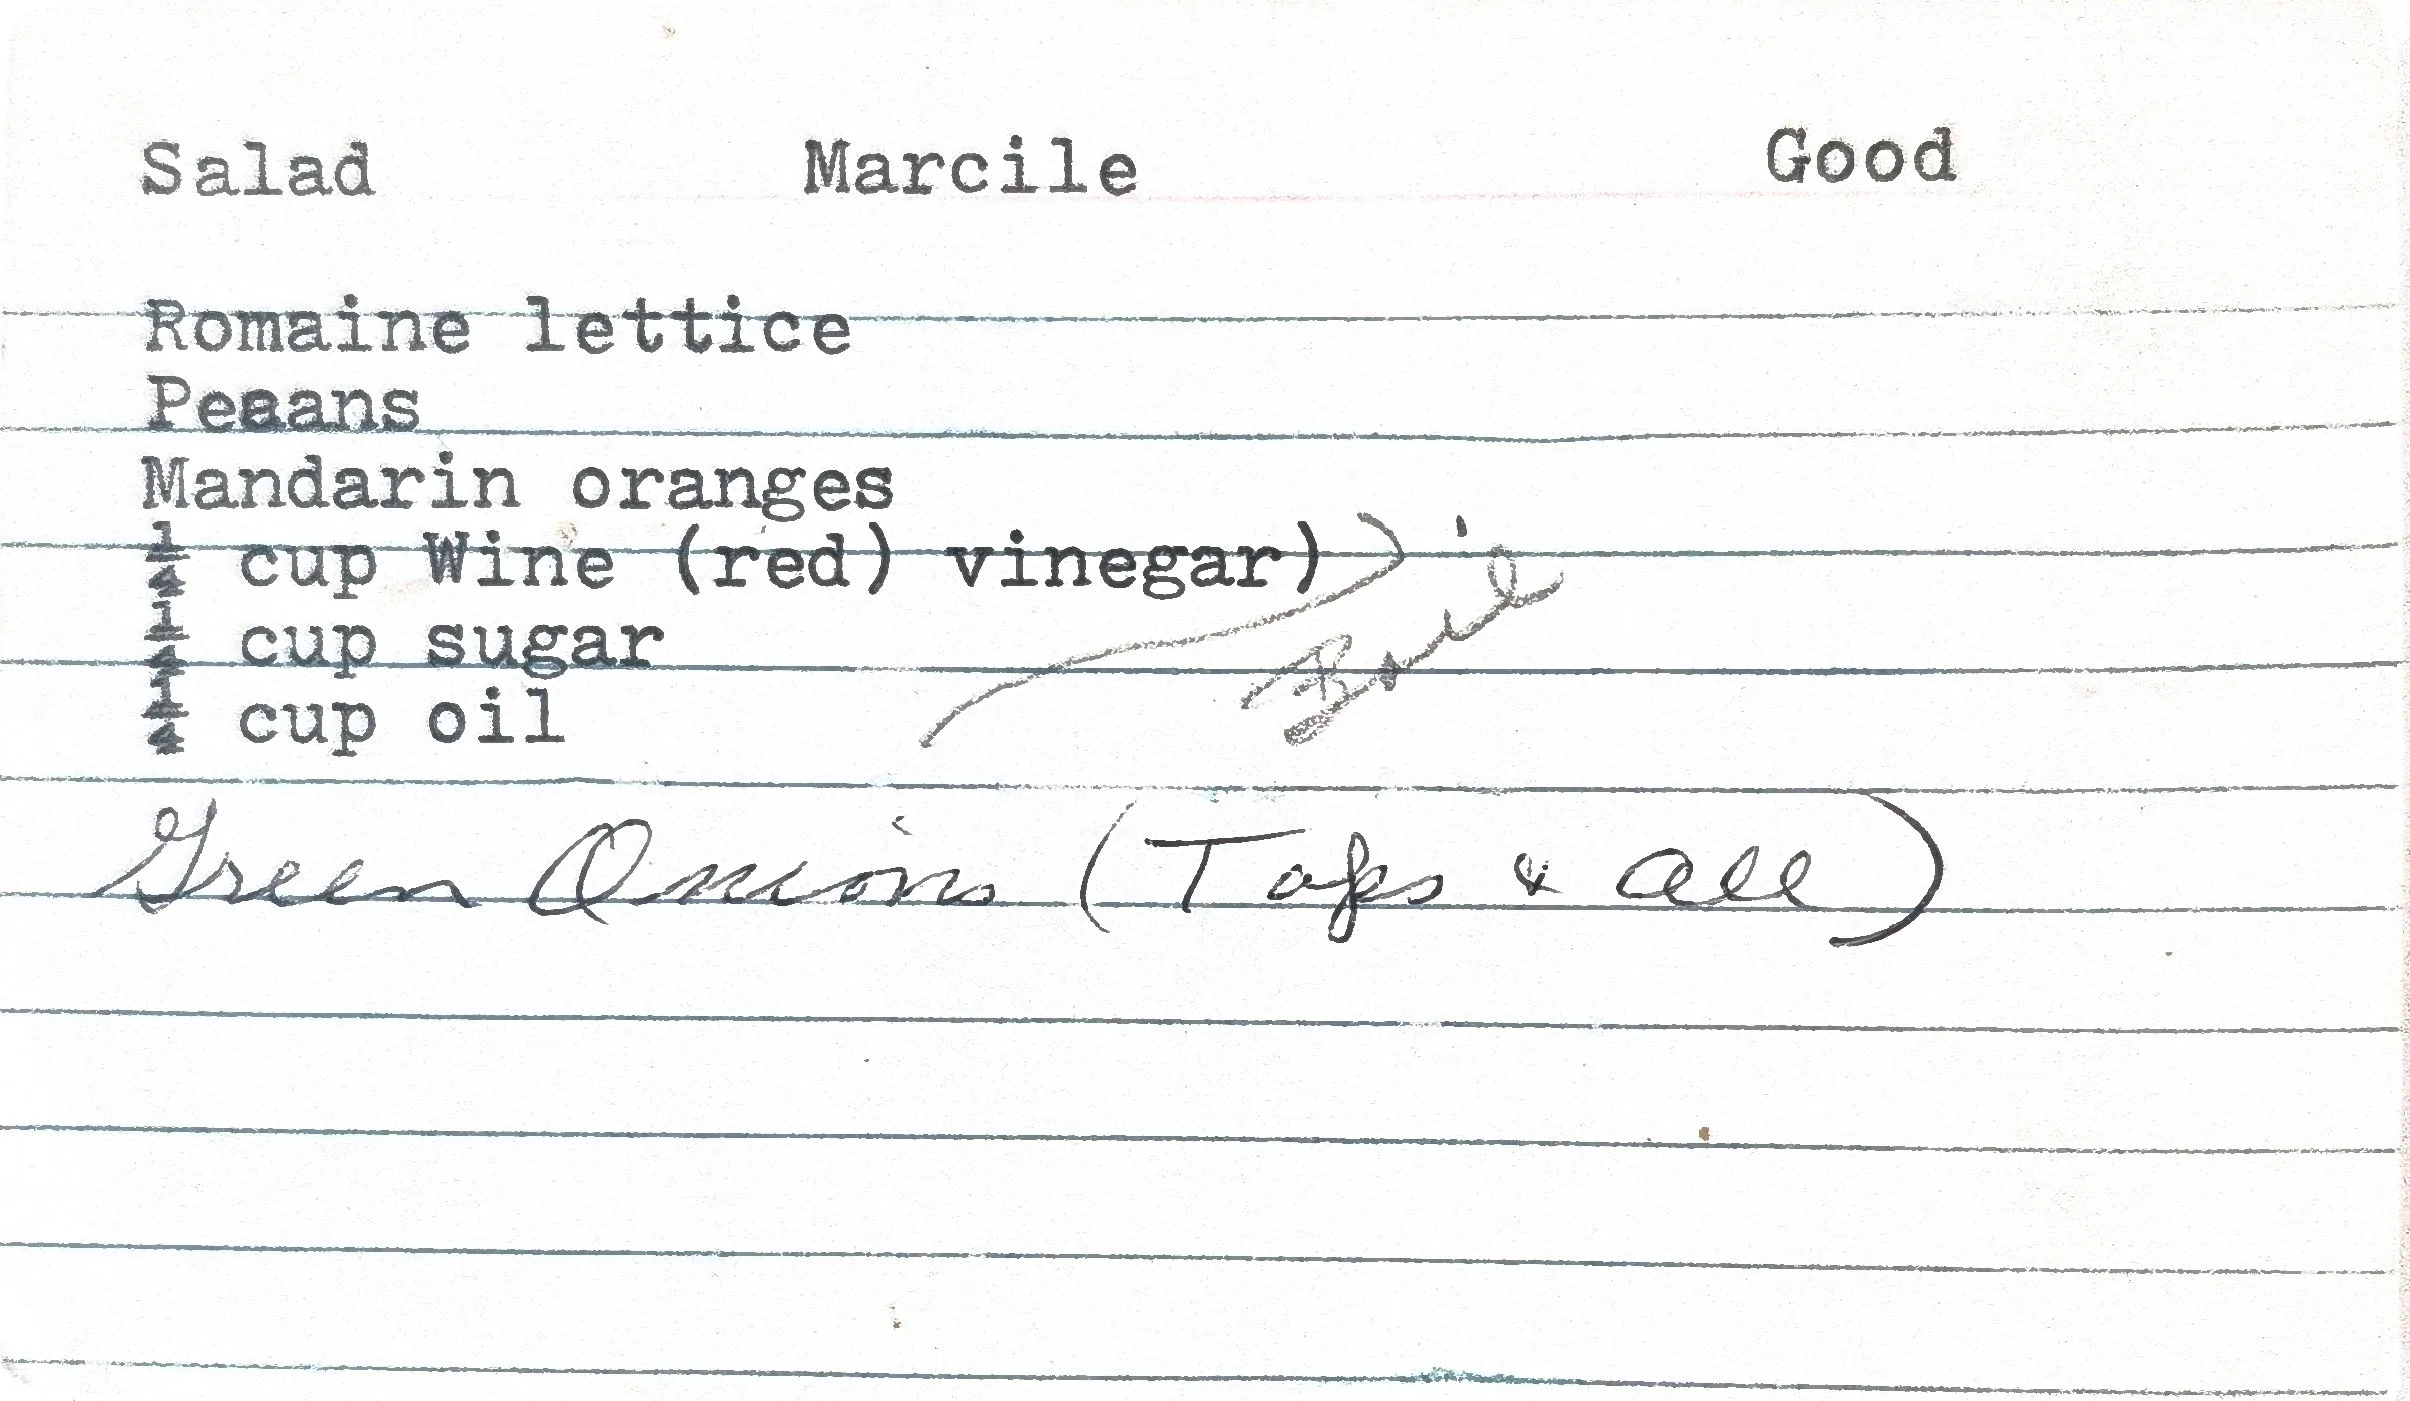 Salad Marcile Good
Romaine lettice
Pecans
Mandarin oranges
1/4 cup Wine (red) vinegar)
1/4 cup sugar
1/4 cup oil
Boil
Green Onions (Tops & all)